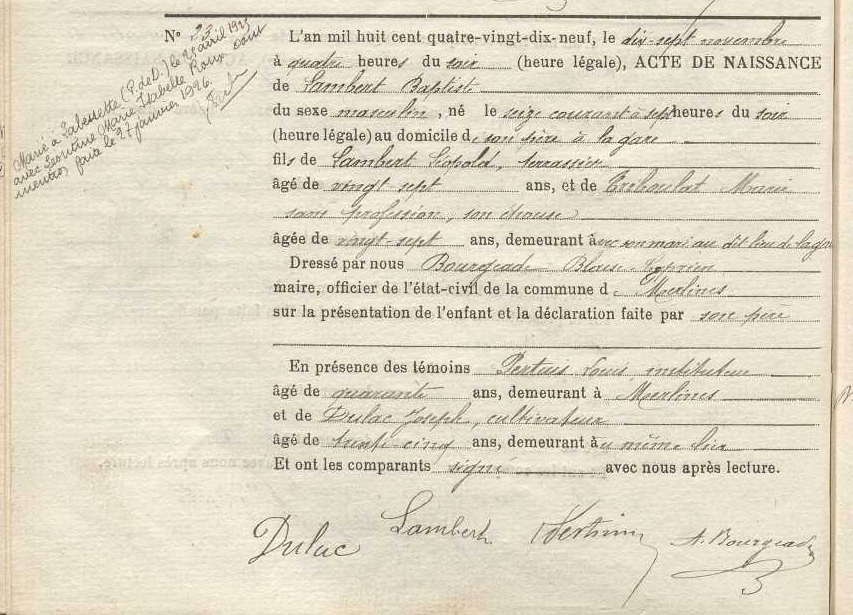 N° 23
Marié à Labessette (P. de D.) le 25 avril 1925
avec Léontine Marie Isabelle Roux dont
mention faite le 27 janvier 1926.
L'an mil huit cent quatre-vingt-dix-neuf, le dix-sept novembre
à quatre heures du soir (heure légale), ACTE DE NAISSANCE
de Lambert Baptiste
du sexe masculin, né le seize courant à sept heures du soir
(heure légale) au domicile de son père à la gare
fils de Lambert Léopold, terrassier
âgé de vingt sept ans, et de Triboulat Marie
sans profession, son épouse
âgée de vingt-sept ans, demeurant avec son mari au dit lieu de la gare
Dressé par nous Bourgeade Blaise Cyprien
maire, officier de l'état-civil de la commune de Merlines
sur la présentation de l'enfant et la déclaration faite par son père
En présence des témoins Louis instituteur
âgé de quarante ans, demeurant à Merlines
et de Dulac Joseph, cultivateur
âgé de trente cinq ans, demeurant au même lieu
Et ont les comparants signé avec nous après lecture.
Dulac Lambert A. Bourgeade